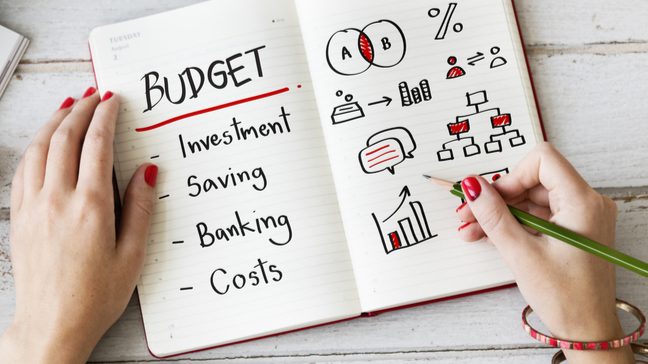 TUESDAY
August
2
BUDGET
- Investment
- Saving
- Banking
- Costs
A B
%